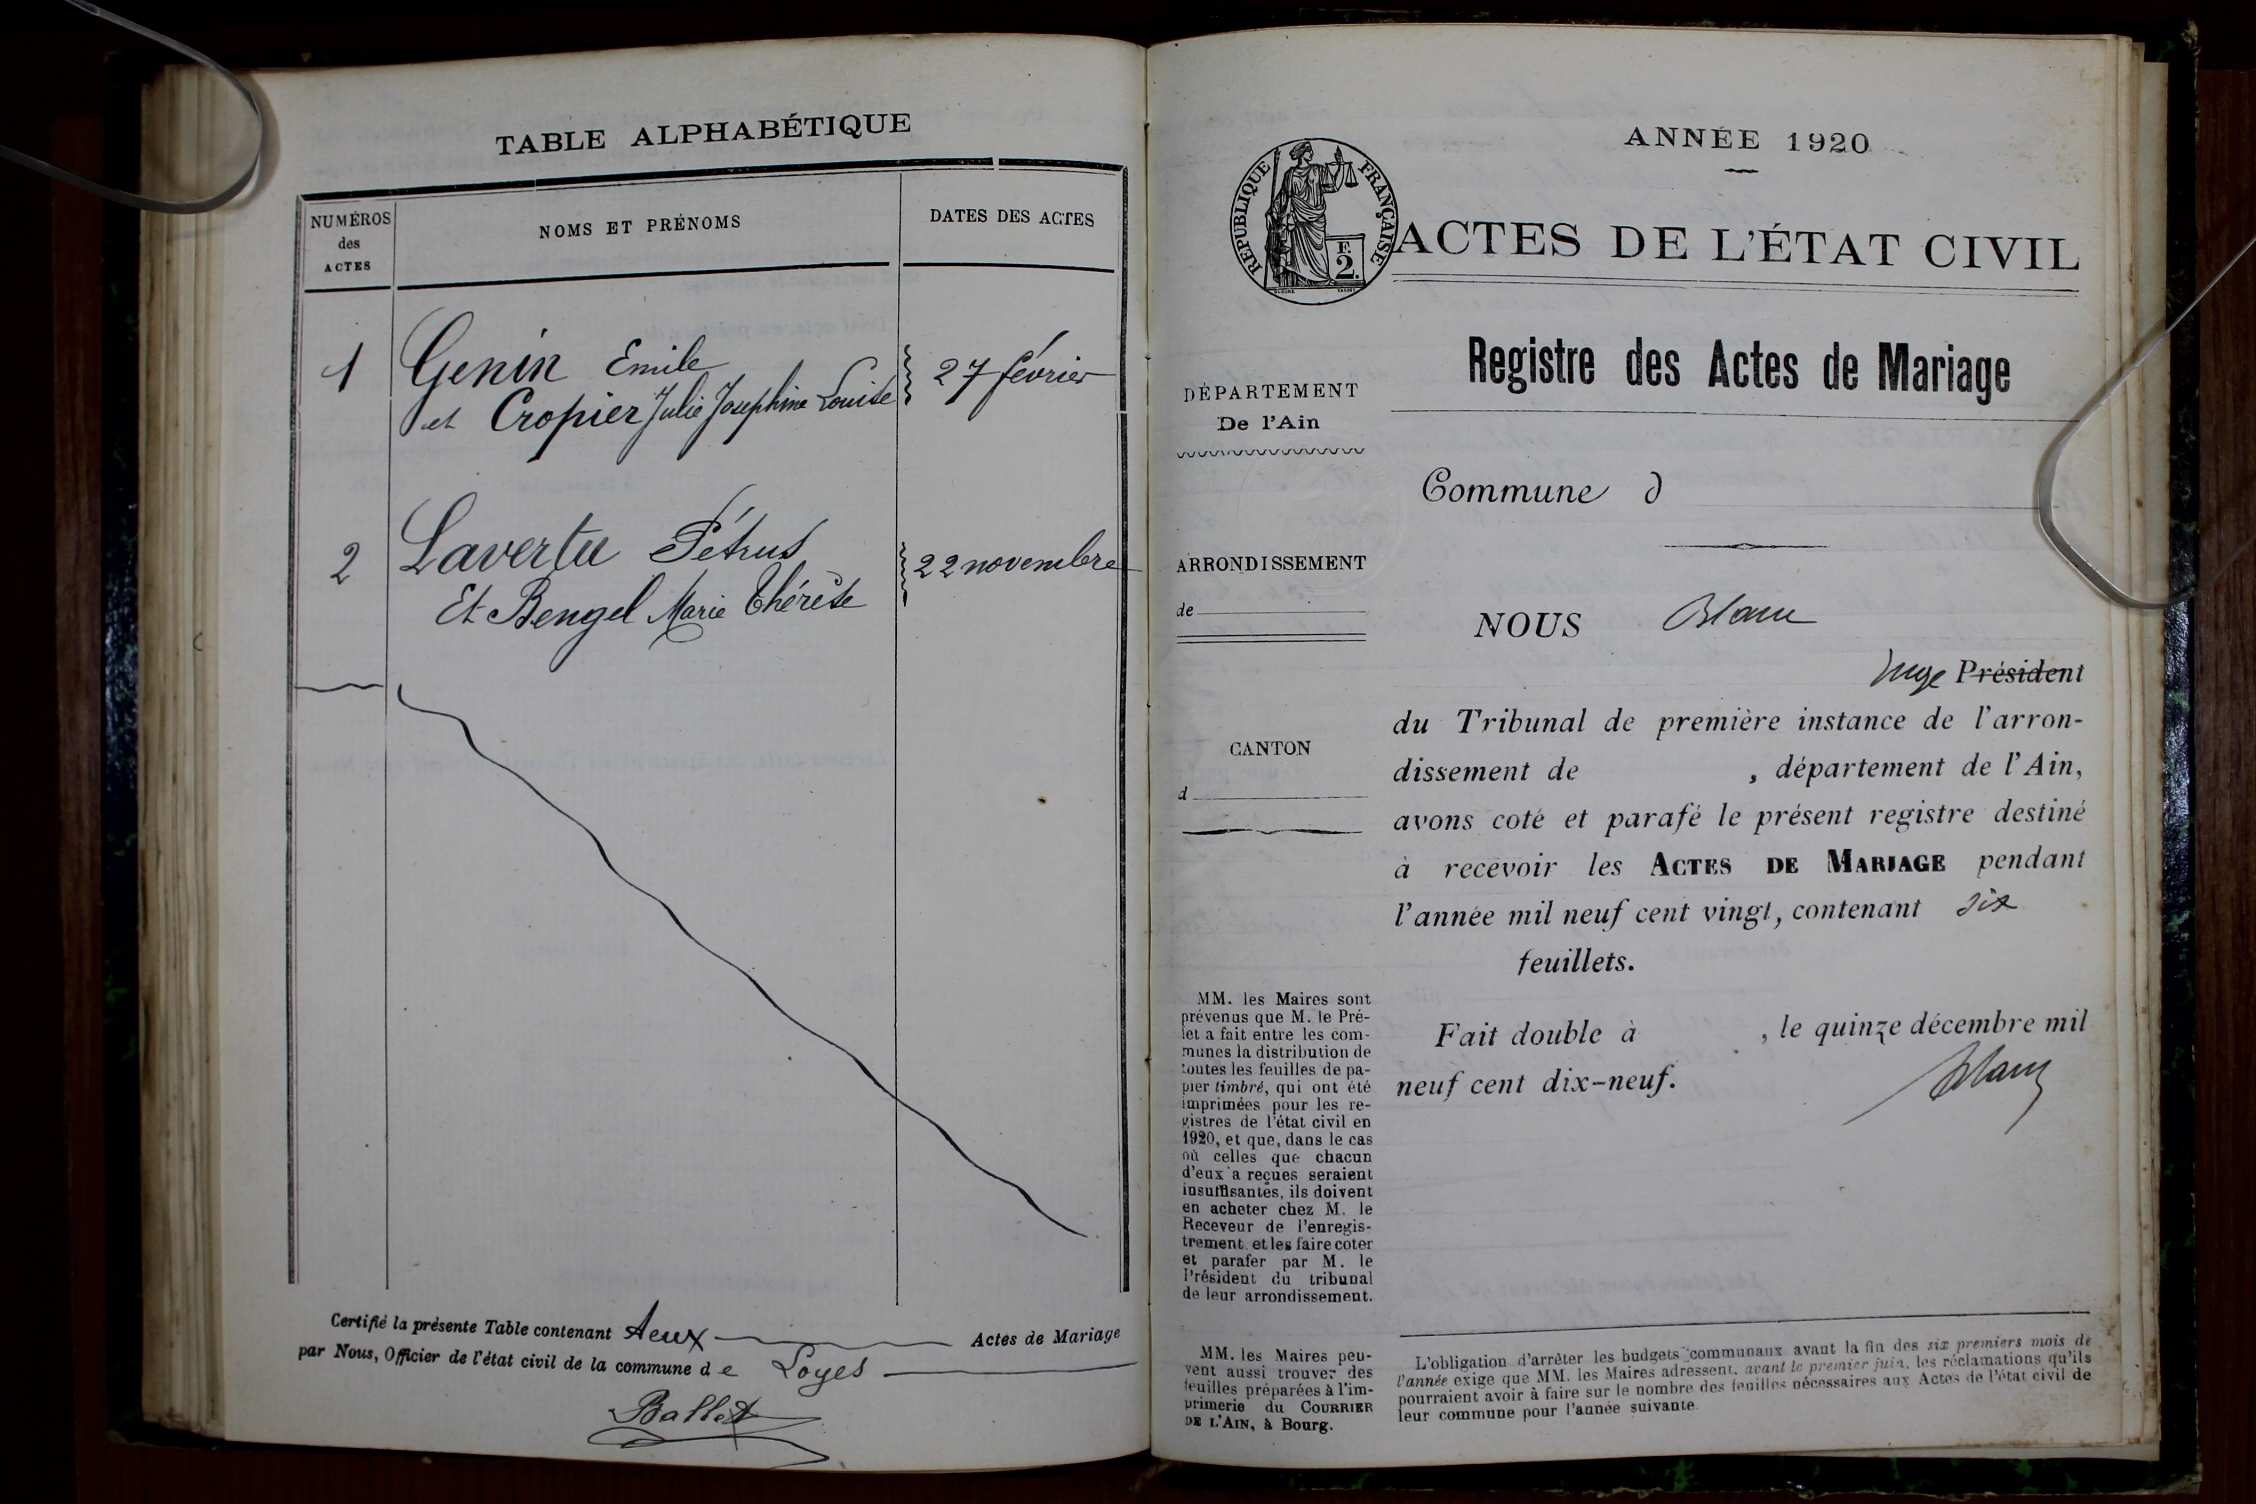 TABLE ALPHABÉTIQUE
NUMÉROS
des
ACTES
NOMS ET PRÉNOMS
DATES DES ACTES
1
Genin Emile
et Cropier Julie Josephine Louise
27 février
2
Lavertu Pétrus
Et Bengel Marie Thérèse
22 novembre
Certifié la présente Table contenant deux Actes de Mariage
par Nous, Officier de l'état civil de la commune de Loyes
Ballet
ANNÉE 1920
RÉPUBLIQUE FRANÇAISE
F.
2.
ACTES DE L'ÉTAT CIVIL
Registre des Actes de Mariage
DÉPARTEMENT
De l'Ain
ARRONDISSEMENT
de
CANTON
d
MM. les Maires sont
prévenus que M. le Pré-
fet a fait entre les com-
munes la distribution de
toutes les feuilles de pa-
pier timbré, qui ont été
imprimées pour les re-
gistres de l'état civil en
1920, et que, dans le cas
où celles que chacun
d'eux a reçues seraient
insuffisantes, ils doivent
en acheter chez M. le
Receveur de l'enregis-
trement et les faire coter
et parafer par M. le
Président du tribunal
de leur arrondissement.
MM. les Maires peu-
vent aussi trouver des
feuilles préparées à l'im-
primerie du COURRIER
DE L'AIN, à Bourg.
Commune d
NOUS Blanc
Juge Président
du Tribunal de première instance de l'arron-
dissement de , département de l'Ain,
avons coté et parafé le présent registre destiné
à recevoir les ACTES DE MARIAGE pendant
l'année mil neuf cent vingt, contenant six
feuillets.
Fait double à , le quinze décembre mil
neuf cent dix-neuf.
Blanc
L'obligation d'arrêter les budgets communaux avant la fin des six premiers mois de
l'année exige que MM. les Maires adressent, avant le premier juin, les réclamations qu'ils
pourraient avoir à faire sur le nombre des feuilles nécessaires aux Actes de l'état civil de
leur commune pour l'année suivante.